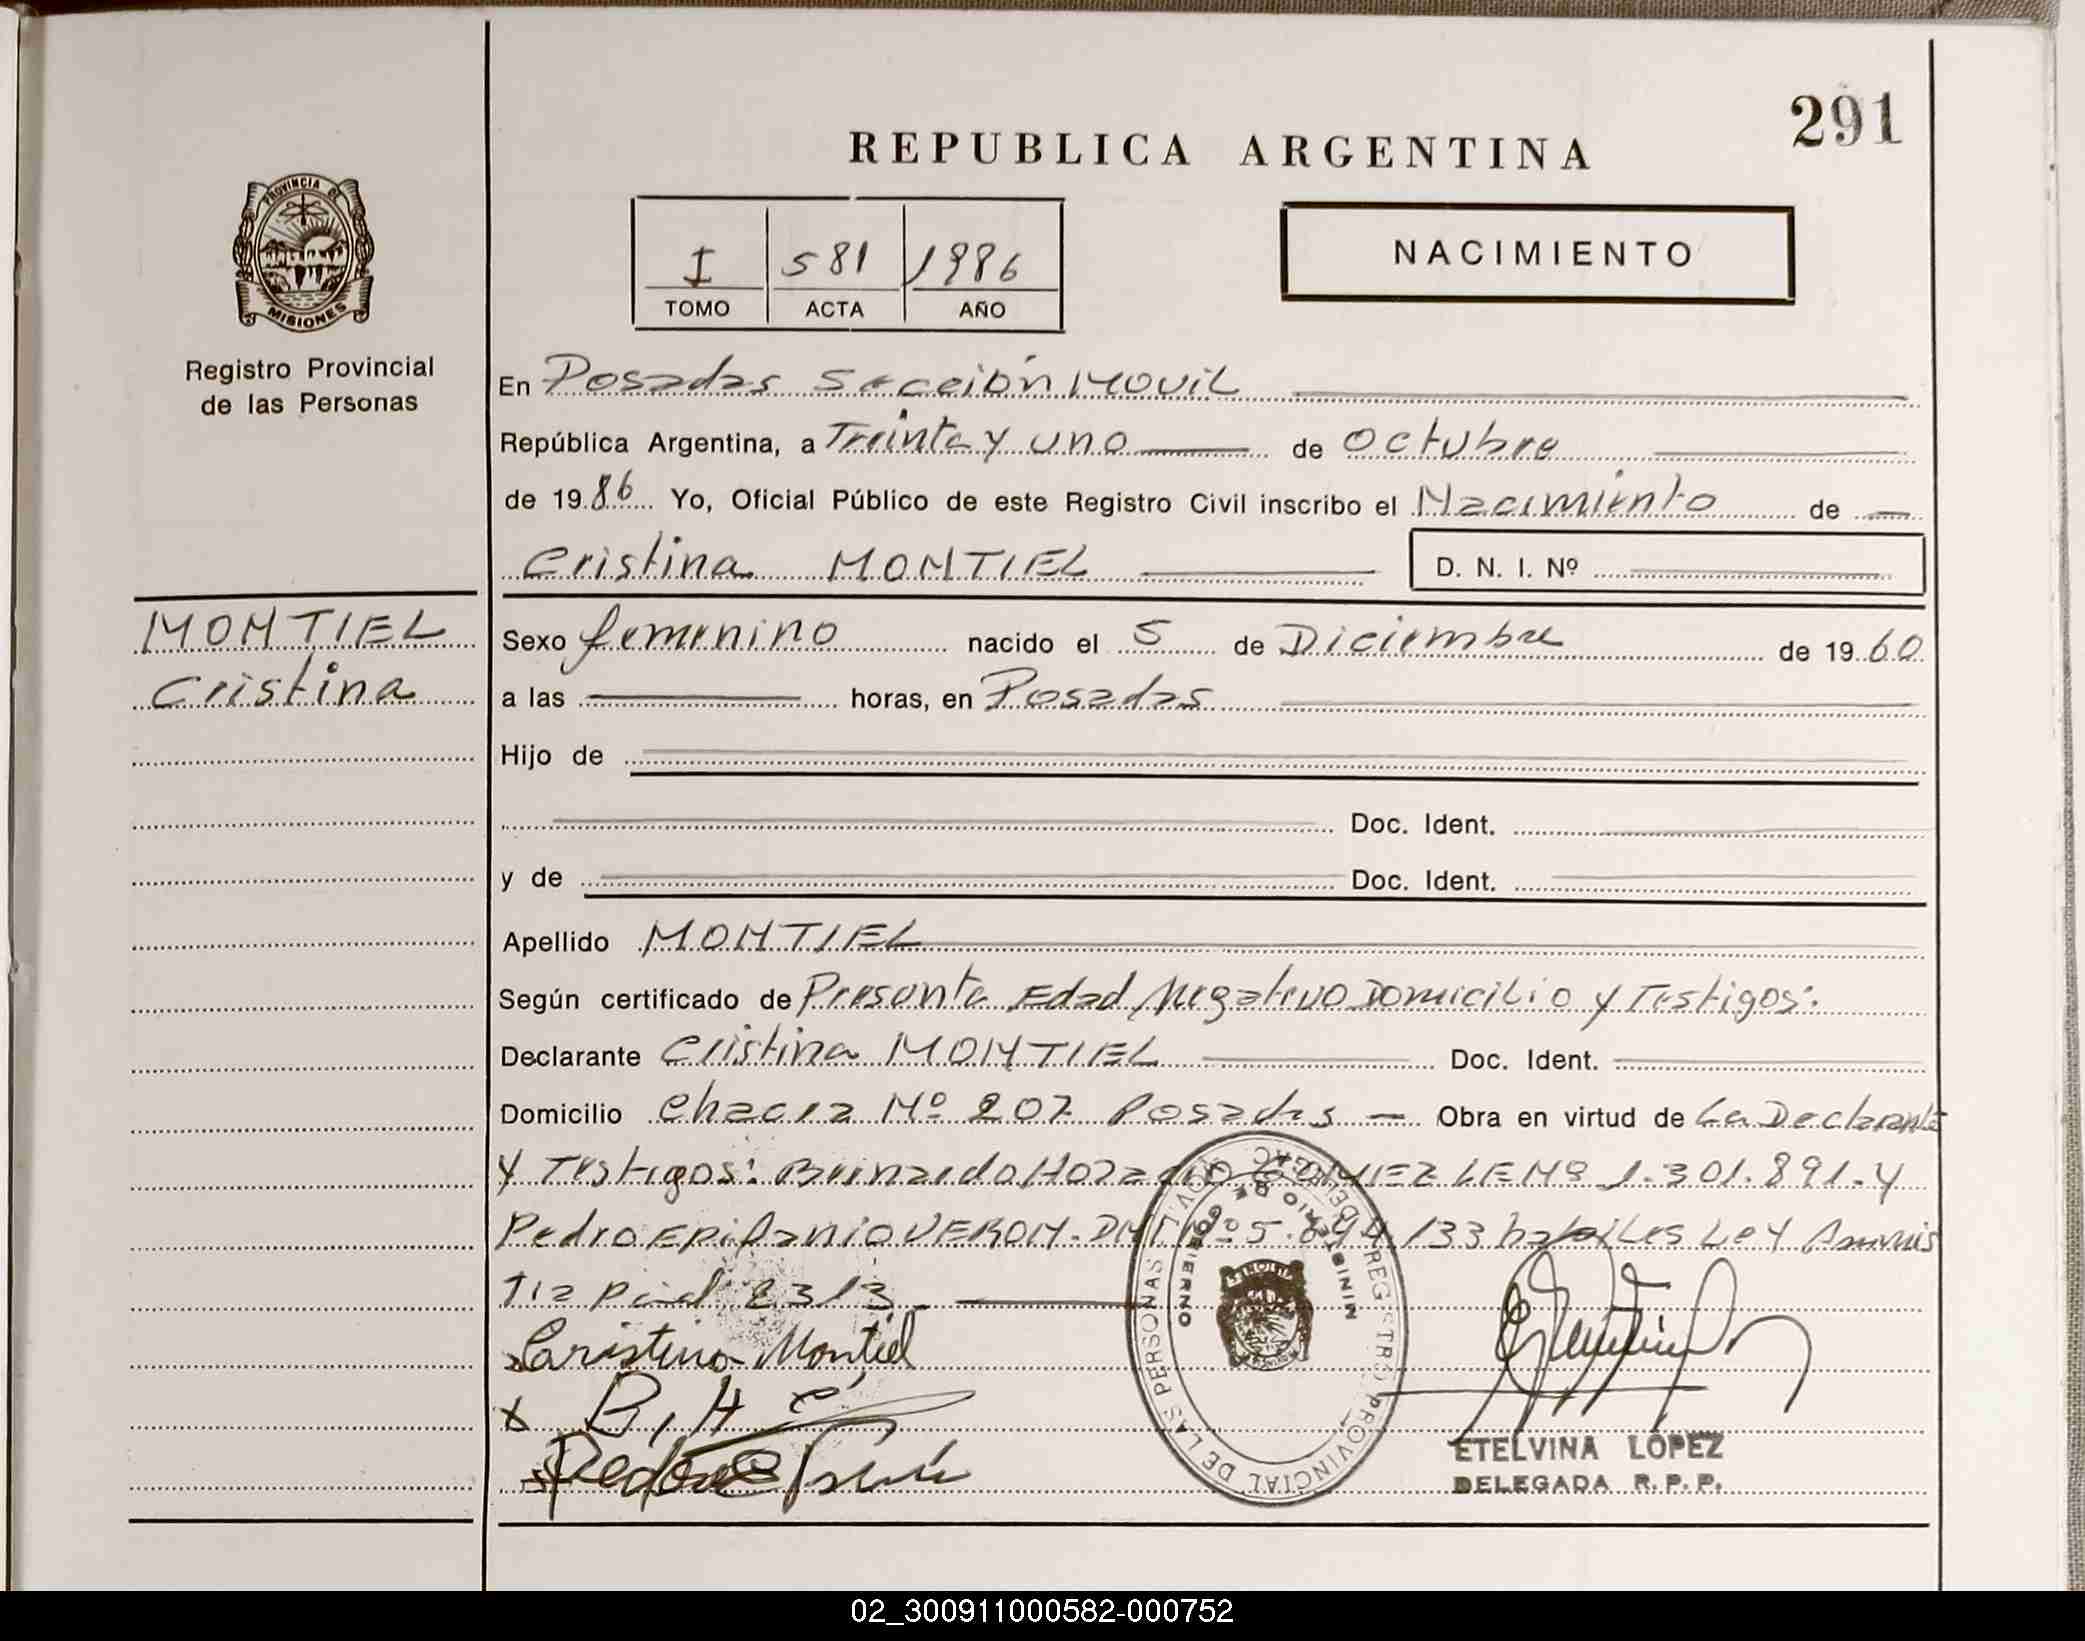 291
REPUBLICA ARGENTINA
PROVINCIA DE
MISIONES
I 581 1986
TOMO ACTA AÑO
NACIMIENTO
Registro Provincial
de las Personas
En Posadas Sección Movil
República Argentina, a Treinta y uno de Octubre
de 1986 Yo, Oficial Público de este Registro Civil inscribo el Nacimiento de
Cristina MONTIEL D. N. I. Nº
MONTIEL
Cristina
Sexo femenino nacido el 5 de Diciembre de 1960
a las horas, en Posadas
Hijo de
Doc. Ident.
y de Doc. Ident.
Apellido MONTIEL
Según certificado de Presunta Edad Negativo Domicilio y Testigos:
Declarante Cristina MONTIEL Doc. Ident.
Domicilio Chacra Nº 207 Posadas Obra en virtud de La Declarante
y Testigos: Bernardo Horacio GOMEZ LE Nº 1.301.891. y
Pedro Epifanio VERON. DNI Nº 5. 133 habiles Ley Amnis
tia 2313.
Caristina Montiel
x B. H.
MINISTERIO DE GOBIERNO
REGISTRO PROVINCIAL DE LAS PERSONAS
ETELVINA LOPEZ
DELEGADA R.P.P.
02_300911000582-000752